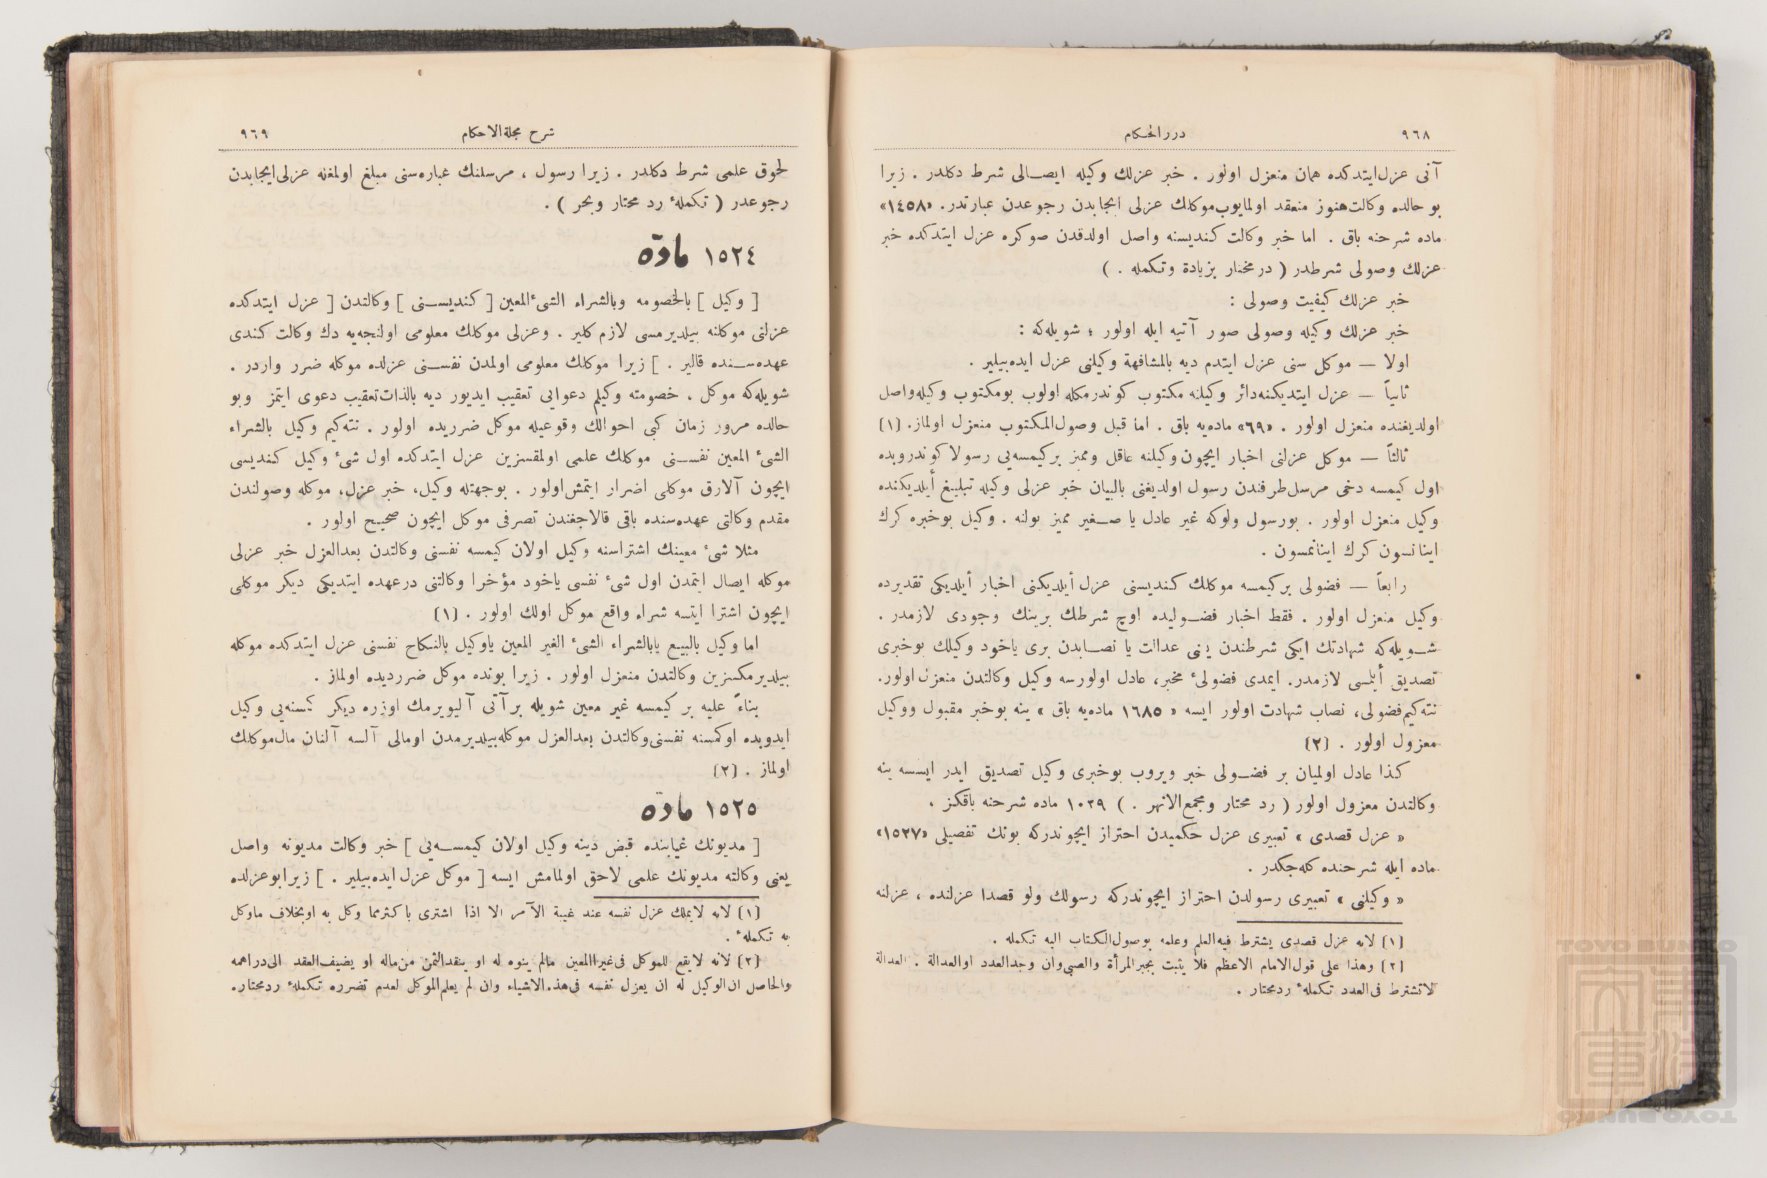 ٩٦٨
دررالحكام
آنی عزل‌ايتدكده همان منعزل اولور . خبر عزلك وكيله ايصـالی شرط دكلدر . زيرا
بو حالده وكالت‌هنوز منعقد اولمايوب‌موكلك عزلی ايجابدن رجوعدن عبارتدر. «١٤٥٨»
ماده شرحنه باق . اما خبر وكالت كنديسنه واصل اولدقدن صوكره عزل ايتدكده خبر
عزلك وصولی شرطدر ( درمختار بزيادة وتكمله . )
خبر عزلك كيفيت وصولی :
خبر عزلك وكيله وصولی صور آتيه ايله اولور ؛ شويله‌كه :
اولا — موكل سنی عزل ايتدم ديه بالمشافهة وكيلنی عزل ايده‌بيلير .
ثانياً — عزل ايتديكنه‌دائر وكيلنه مكتوب كوندرمكله اولوب بومكتوب وكيله‌واصل
اولديغنده منعزل اولور . «٦٩» ماده‌يه باق . اما قبل وصول‌المكتوب منعزل اولماز. [١]
ثالثاً — موكل عزلنی اخبار ايچون‌وكيلنه عاقل ومميز بركيمسه‌يی رسولا كوندروبده
اول كيمسه دخی مرسل‌طرفندن رسول اولديغنی بالبيان خبر عزلی وكيله تبليغ أيلديكنده
وكيل منعزل اولور . بورسول ولوكه غير عادل يا صـغير مميز بولنه . وكيل بوخبره كرك
اينانسون كرك اينانمسون .
رابعاً — فضولی بركيمسه موكلك كنديسنی عزل أيلديكنی اخبار أيلديكی تقديرده
وكيل منعزل اولور . فقط اخبار فضـوليده اوچ شرطك برينك وجودی لازمدر .
شـويله‌كه شهادتك ايكی شرطندن يعنی عدالت يا نصـابدن بری ياخود وكيلك بوخبری
تصديق أيلمسی لازمدر. ايمدی فضولیٔ مخبر، عادل اولورسه وكيل وكالتدن منعزل اولور.
نته‌كيم‌فضولی، نصاب شهادت اولور ايسه « ١٦٨٥ ماده‌يه باق » ينه بوخبر مقبول ووكيل
معزول اولور . [٢]
كذا عادل اولميان بر فضـولی خبر ويروب بوخبری وكيل تصديق ايدر ايسـه ينه
وكالتدن معزول اولور ( رد محتار ومجمع‌الانهر . ) ١٠٣٩ ماده شرحنه باقكز .
« عزل قصدی » تعبيری عزل حكميدن احتراز ايچوندركه بونك تفصيلی «١٥٢٧»
ماده ايله شرحنده كله‌جكدر .
« وكيلنی » تعبيری رسولدن احتراز ايچوندركه رسولك ولو قصدا عزلنده ، عزلنه
[١] لانه عزل قصدی يشترط فيه‌العلم وعلمه بوصول‌الكتاب اليه تكمله .
[٢] وهذا علی قول‌الامام الاعظم فلا يثبت بخبرالمرأة والصبی‌وان وجدالعدد اوالعدالة . العدالة
لاتشترط فی‌العدد تكملهٔ ردمحتار .
شرح مجلةالاحكام
٩٦٩
لحوق علمی شرط دكلدر . زيرا رسول ، مرسلنك عباره‌سنی مبلغ اولمغله عزلی‌ايجابدن
رجوعدر ( تكملهٔ رد محتار وبحر ) .
١٥٢٤ مادّه
[ وكيل ] بالخصومه وبالشراء الشیٔ‌المعين [ كنديسـنی ] وكالتدن [ عزل ايتدكده
عزلنی موكلنه بيلديرمسی لازم‌كلير . وعزلی موكلك معلومی اولنجه‌يه دك وكالت كندی
عهده‌سـنده قالير . ] زيرا موكلك معلومی اولمدن نفسـنی عزلده موكله ضرر واردر .
شويله‌كه موكل ، خصومته وكيلم دعوايی تعقيب ايديور ديه بالذات‌تعقيب دعوی ايتمز وبو
حالده مرور زمان كبی احوالك وقوعيله موكل ضرريده اولور . نته‌كيم وكيل بالشراء
الشیٔ المعين نفسـنی موكلك علمی اولمقسزين عزل ايتدكده اول شیٔ وكيل كنديسی
ايچون آلارق موكلی اضرار ايتمش‌اولور . بوجهتله وكيل، خبر عزل، موكله وصولندن
مقدم وكالتی عهده‌سنده باقی قالاجغندن تصرفی موكل ايچون صحيح اولور .
مثلا شیٔ معينك اشتراسنه وكيل اولان كيمسه نفسنی وكالتدن بعدالعزل خبر عزلی
موكله ايصال ايتمدن اول شیٔ نفسی ياخود مؤخرا وكالتنی درعهده ايتديكی ديكر موكلی
ايچون اشترا ايتسه شراء واقع موكل اولك اولور . [١]
اما وكيل بالبيع يابالشراء الشیٔ الغير المعين ياوكيل بالنكاح نفسنی عزل ايتدكده موكله
بيلديرمكسزين وكالتدن منعزل اولور . زيرا بونده موكل ضررديده اولماز .
بناءً عليه بر كيمسه غير معين شويله برآتی آليويرمك اوزره ديكر كيمسه‌يی وكيل
ايدوبده اوكمسنه نفسنی‌وكالتدن بعدالعزل موكله‌بيلديرمدن اومالی آلسه آلنان مال‌موكلك
اولماز . [٢]
١٥٢٥ مادّه
[ مديونك غيابنده قبض دينه وكيل اولان كيمسـه‌يی ] خبر وكالت مديونه واصل
يعنی وكالته مديونك علمی لاحق اولمامش ايسه [ موكل عزل ايده‌بيلير . ] زيرابوعزلده
[١] لانه لايملك عزل نفسه عند غيبة الآمر الا اذا اشتری باكثرمما وكل به اوبخلاف ماوكل
به تكملهٔ .
[٢] لانه لايقع للموكل فی‌غيرالمعين مالم ينوه له او ينقدالثمن من‌ماله او يضيف‌العقد الی‌دراهمه
والحاصل ان‌الوكيل له ان يعزل نفسه فی‌هذه‌الاشياء وان لم يعلم‌الموكل لعدم تضرره تكملهٔ ردمحتار.
TOYO BUNKO